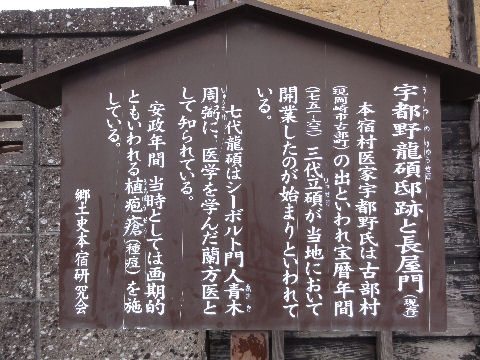 宇都野龍碩邸跡と長屋門(現存)
うつのりゅうせき
本宿村医家宇都野氏は古部村
(現岡崎市古部町)の出といわれ宝暦年間
(一七五一〜六三)三代立碩が当地において
開業したのが始まりといわれて
いる。
七代龍碩はシーボルト門人青木
周弼に、医学を学んだ蘭方医と
して知られている。
安政年間 当時としては画期的
ともいわれる植疱瘡(種痘)を施
している。
郷土史本宿研究会